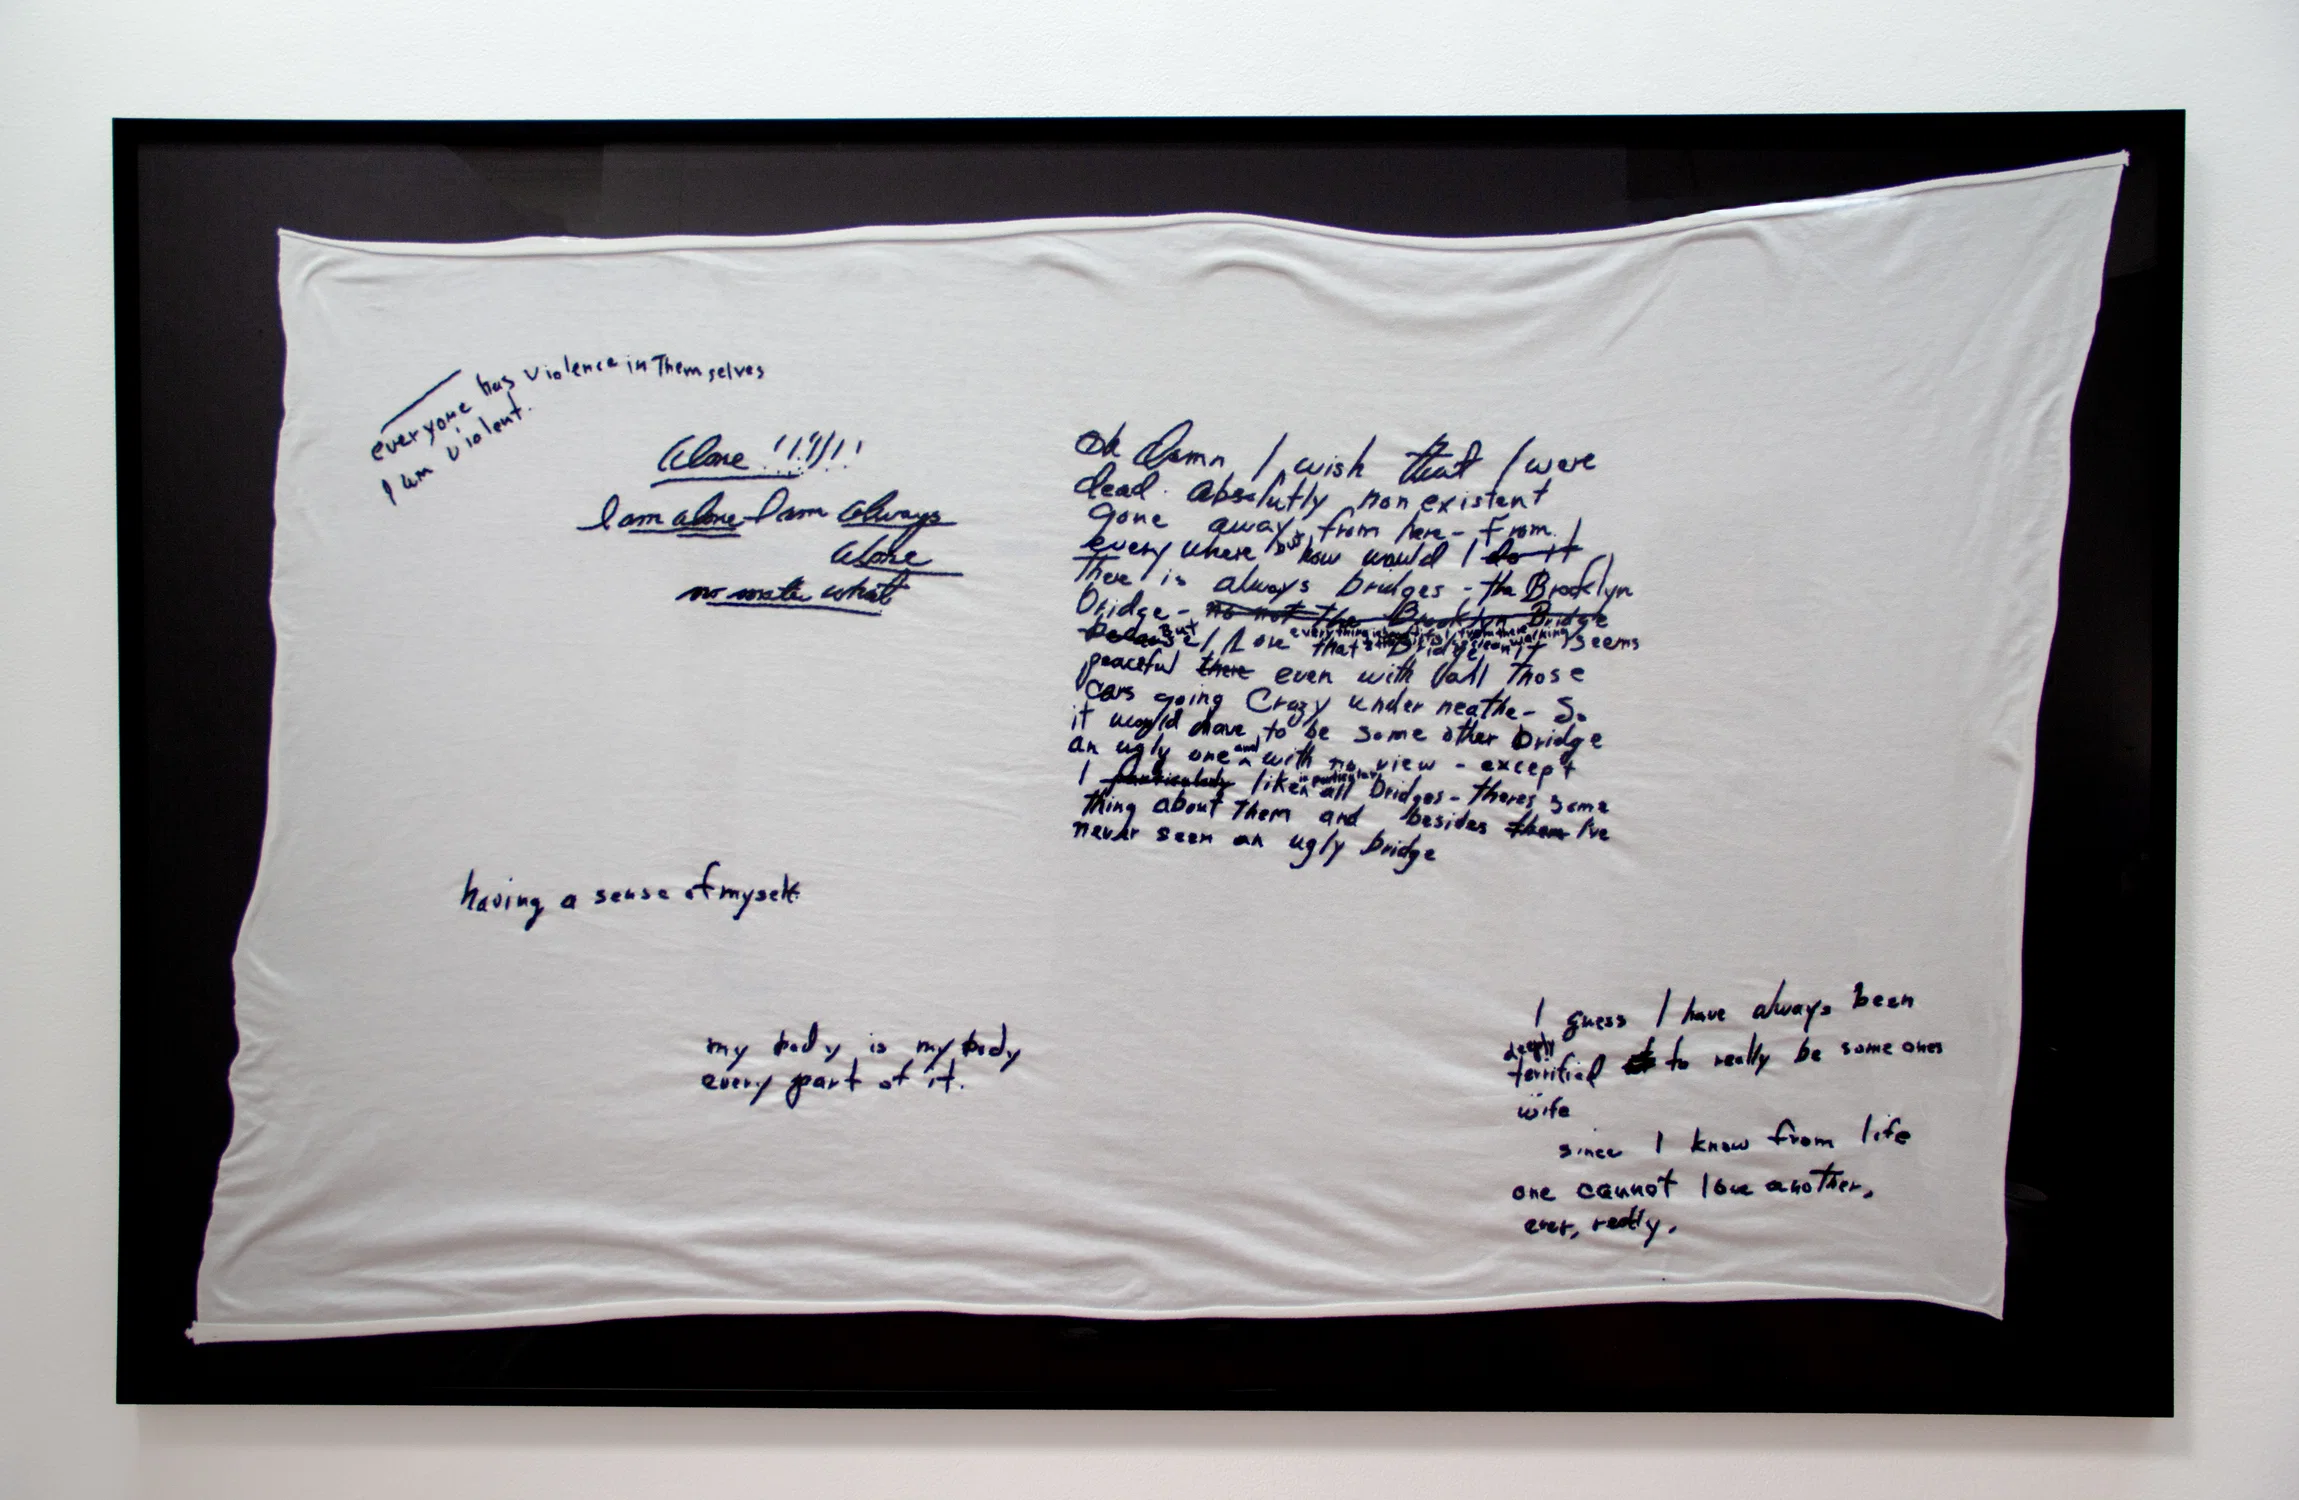 everyone has violence in Themselves
I am violent.
Alone !!!!!!
I am alone I am always
alone
no matter what
Oh Damn I wish that I were
dead. absolutly nonexistent
gone away from here - From
every where but how would I do it
There is always bridges - the Brooklyn
bridge - no not the Brooklyn Bridge
because But I Love that Bridge everything is beautiful from there walking on it seems
peaceful there even with all Those
cars going Crazy under neathe - So
it would have to be some other bridge
an ugly one and with no view - except
I particularly like in particular all bridges - theres some
thing about Them and besides them I've
never seen an ugly bridge
having a sense of myself
my body is my body
every part of it.
I guess I have always been
deeply
terrified to really be some ones
wife
since I know from life
one cannot love another,
ever, really.